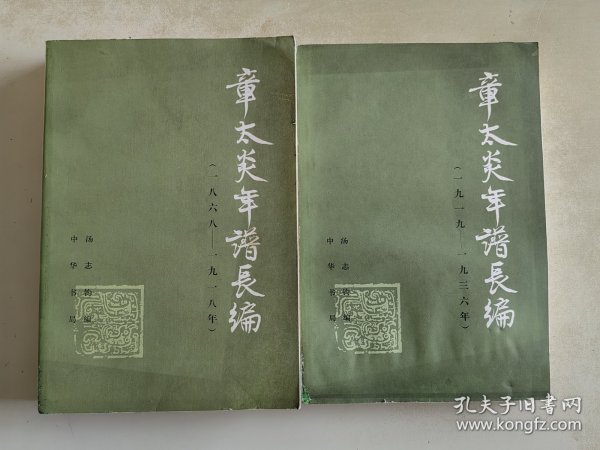 章太炎年譜長編
(一八六八——一九一八年)
汤志钧編
中华书局
章太炎年譜長編
(一九一九—一九三六年)
汤志钧編
中华书局
孔夫子旧书网
www.kongfz.com